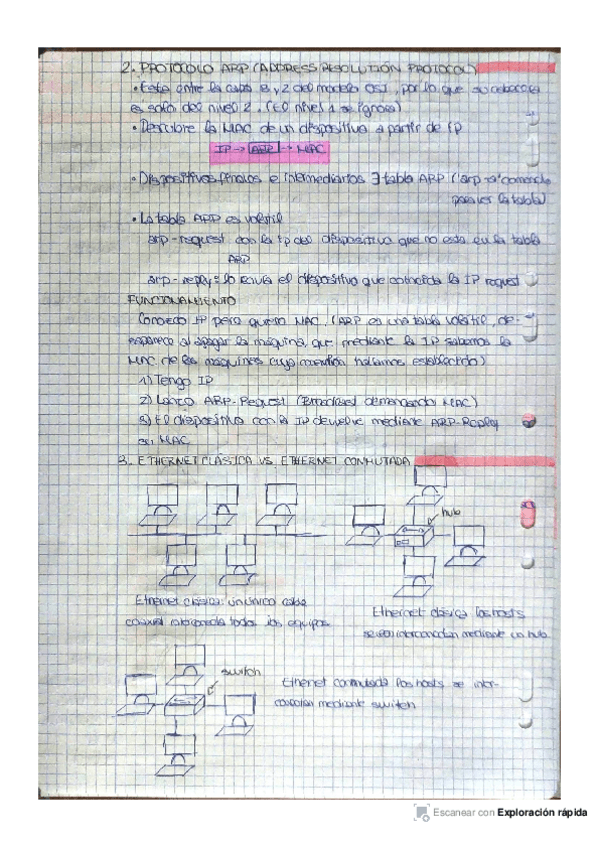 2. PROTOCOLO ARP (ADDRESS RESOLUTION PROTOCOL)
• Esta entre la capa 3 y 2 del modelo OSI, por lo que su cabecera
es solo del nivel 2. (El nivel 1 se ignora)
• Descubre la MAC de un dispositivo a partir de IP
IP → ARP → MAC
• Dispositivos finales e intermediarios ∃ tabla ARP ("arp -a" comando
para ver la tabla)
• La tabla ARP es volátil
arp-request con la ip del dispositivo que no esta en la tabla
ARP
arp-reply: lo envía el dispositivo que coincida la IP request
FUNCIONAMIENTO
Conozco IP pero quiero MAC, (ARP es una tabla volátil, de-
saparece al apagar la máquina, que mediante la IP sabemos la
MAC de las máquinas cuya conexión habíamos establecido)
1) Tengo IP
2) Lanzo ARP-Request (Broadcast demandando MAC)
3) El dispositivo con la IP devuelve mediante ARP-Reply
su MAC
3. ETHERNET CLÁSICA VS. ETHERNET CONMUTADA
hub
Ethernet clásica: un único cable
coaxial interconecta todos los equipos
Ethernet clásica los hosts
se interconectan mediante un hub
switch
Ethernet conmutada los hosts se inter-
conectan mediante switch
Escanear con Exploración rápida